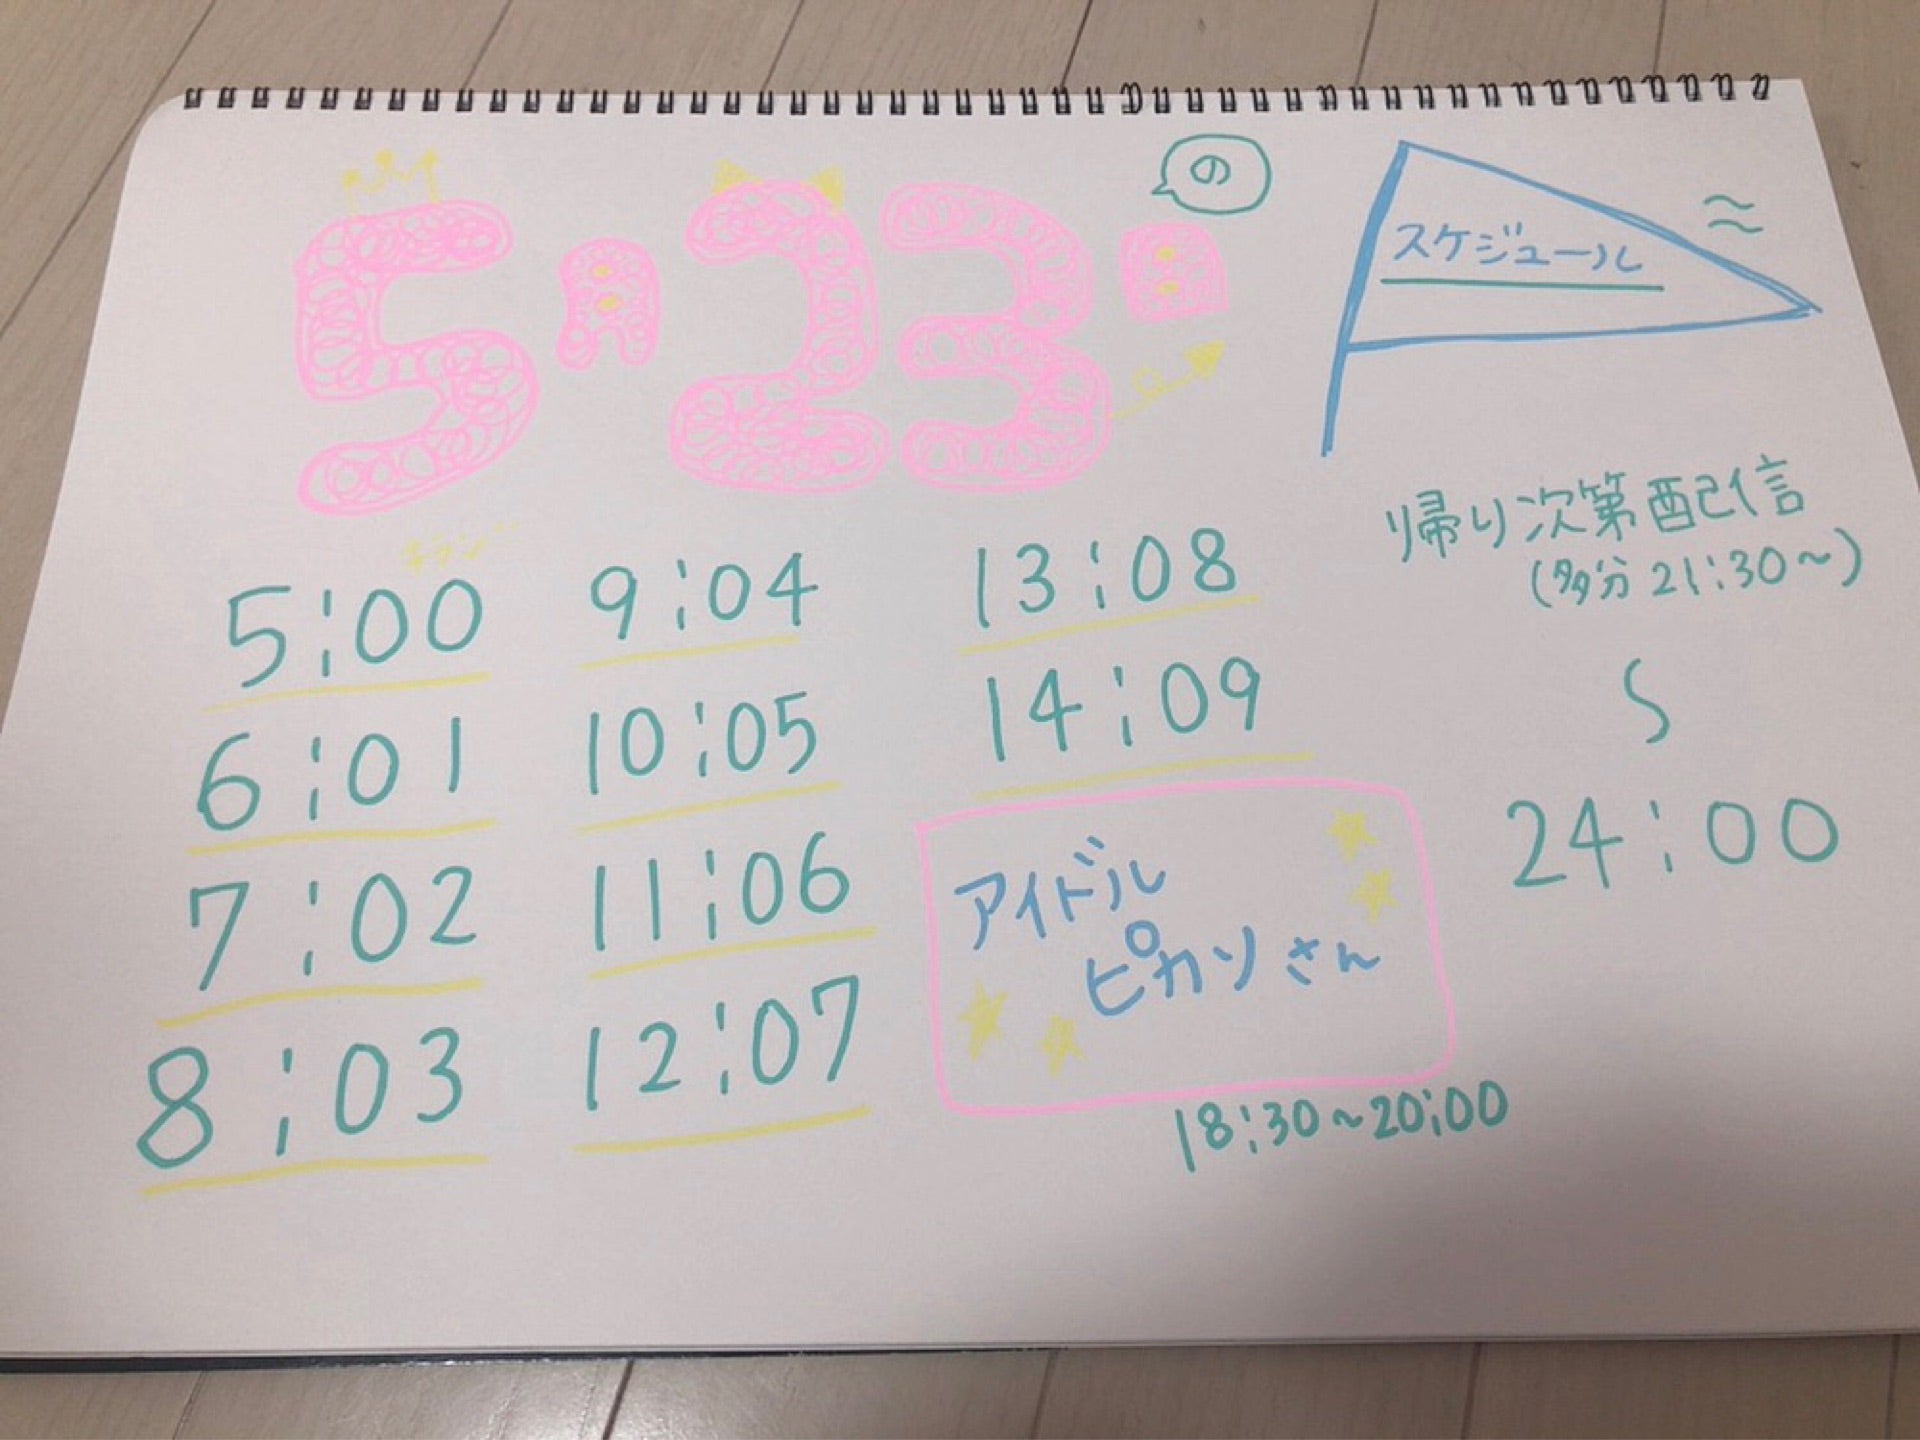 5月23日
の
スケジュール
キラン
5:00
6:01
7:02
8:03
9:04
10:05
11:06
12:07
13:08
14:09
アイドル
ピカソさん
18:30~20:00
帰り次第配信
(多分21:30~)
~
24:00